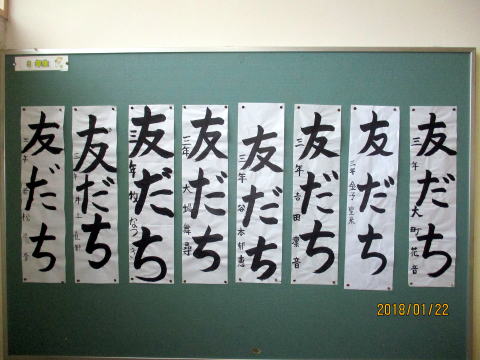 年生
友だち
三年 大町花音
友だち
三年 金子
友だち
三年 吉田凜音
友だち
三年 谷本郁恵
友だち
三年 大場舞尋
友だち
三年 牧 なつき
友だち
三年 井上
友だち
三年
2018/01/22